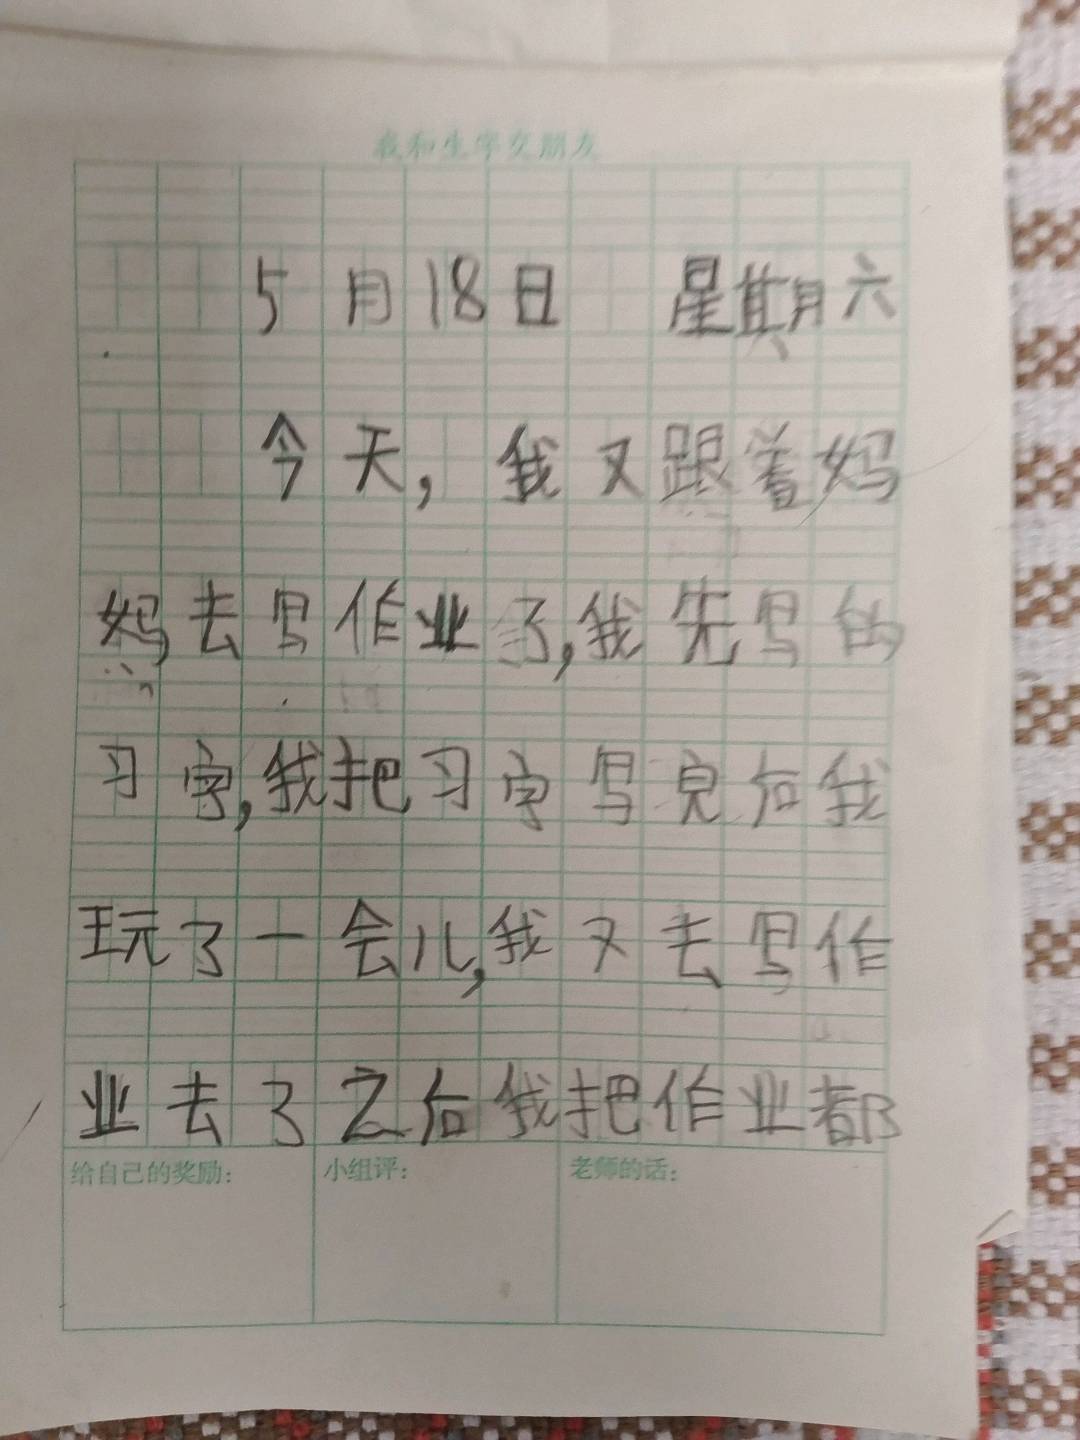 我和生字交朋友
5月18日 星期六
今天，我又跟着妈
妈去写作业了，我先写的
习字，我把习字写完后我
玩了一会儿，我又去写作
业去了之后我把作业都
给自己的奖励： 小组评： 老师的话：